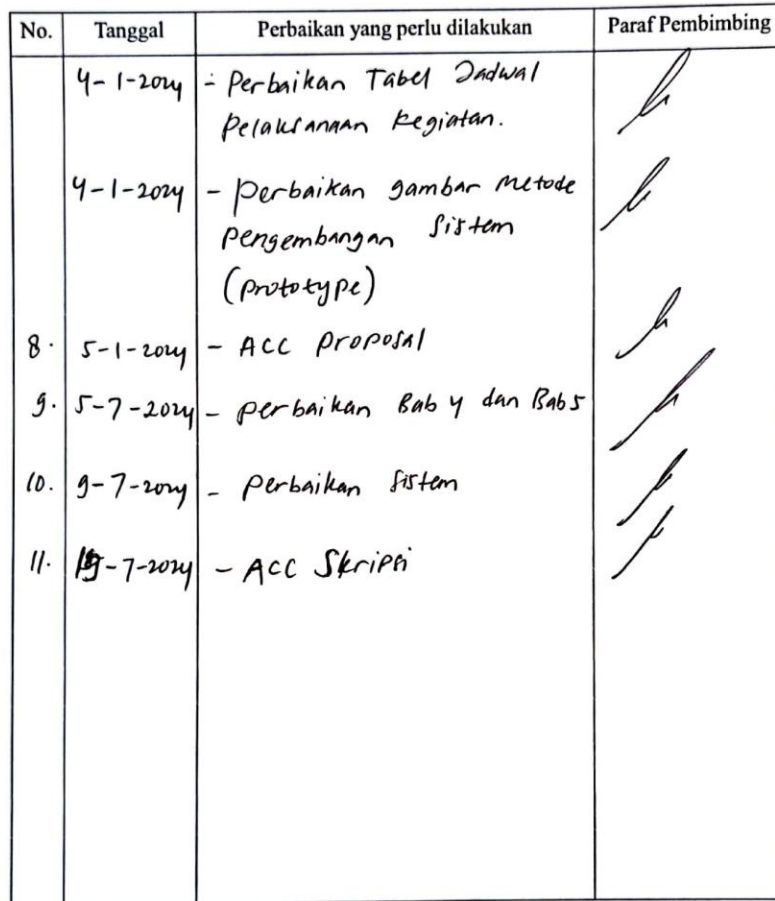 No. Tanggal Perbaikan yang perlu dilakukan Paraf Pembimbing
4-1-2024 - Perbaikan Tabel Jadwal
Pelaksanaan Kegiatan.
4-1-2024 - Perbaikan gambar Metode
Pengembangan Sistem
(Prototype)
8. 5-1-2024 - ACC Proposal
9. 5-7-2024 - Perbaikan Bab 4 dan Bab 5
10. 9-7-2024 - Perbaikan Sistem
11. -7-2024 - ACC Skripsi